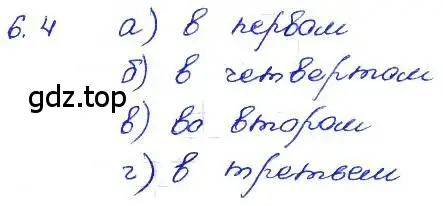 6.4 а) в первом
б) в четвертом
gdz.top
в) во втором
г) в третьем